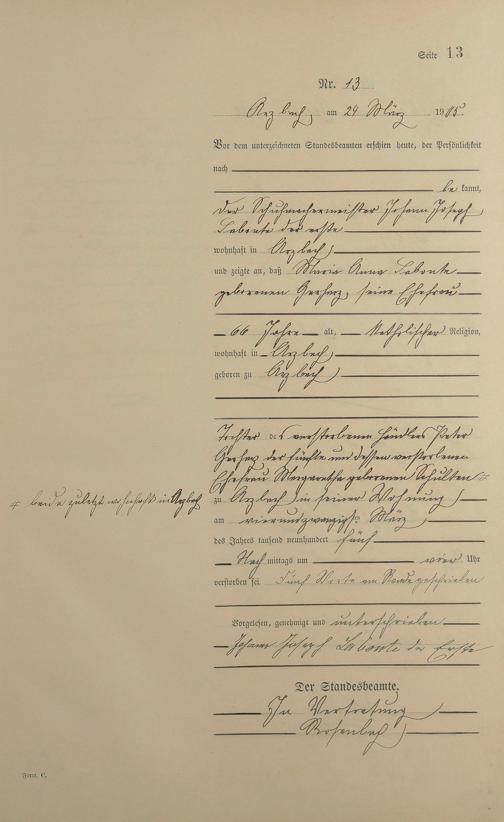 Seite 13
Nr. 13
Arzbach, am 24 März 1905.
Vor dem unterzeichneten Standesbeamten erschien heute, der Persönlichkeit
nach
be kannt,
der Schuhmachermeister Johann Joseph
Labonte der erste
wohnhaft in Arzbach
und zeigte an, daß Maria Anna Labonte
geborenen Gerharz, seine Ehefrau
66 Jahre alt, katholischer Religion,
wohnhaft in Arzbach
geboren zu Arzbach
Tochter des verstorbenen Händlers Peter
Gerharz der fünfte und dessen verstorbenen
Ehefrau Margaretha geborenen Schulten #
# beide zuletzt wohnhaft in Arzbach
zu Arzbach in seiner Wohnung
am vierundzwanzigsten März
des Jahres tausend neunhundert fünf
Nach mittags um vier Uhr
verstorben sei. Fünf Worte am Rande geschrieben
Vorgelesen, genehmigt und unterschrieben
Johann Joseph Labonte der Erste
Der Standesbeamte.
In Vertretung
Rosenbach
Form. C.